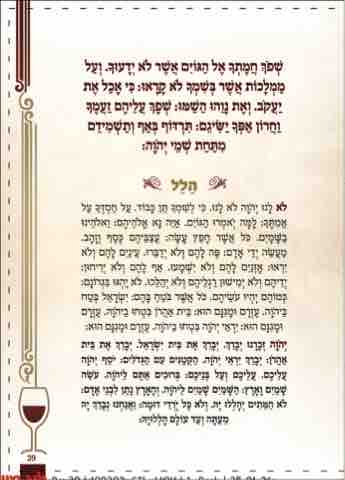 שְׁפֹךְ חֲמָתְךָ אֶל הַגּוֹיִם אֲשֶׁר לֹא יְדָעוּךָ, וְעַל
מַמְלָכוֹת אֲשֶׁר בְּשִׁמְךָ לֹא קָרָאוּ: כִּי אָכַל אֶת
יַעֲקֹב, וְאֶת נָוֵהוּ הֵשַׁמּוּ: שְׁפָךְ עֲלֵיהֶם זַעְמֶךָ
וַחֲרוֹן אַפְּךָ יַשִּׂיגֵם: תִּרְדּוֹף בְּאַף וְתַשְׁמִידֵם
מִתַּחַת שְׁמֵי יְהֹוָה:
הַלֵּל
לֹא לָנוּ יְהֹוָה לֹא לָנוּ, כִּי לְשִׁמְךָ תֵּן כָּבוֹד, עַל חַסְדְּךָ עַל
אֲמִתֶּךָ: לָמָּה יֹאמְרוּ הַגּוֹיִם, אַיֵּה נָא אֱלֹהֵיהֶם: וֵאלֹהֵינוּ
בַשָּׁמָיִם, כֹּל אֲשֶׁר חָפֵץ עָשָׂה: עֲצַבֵּיהֶם כֶּסֶף וְזָהָב,
מַעֲשֵׂה יְדֵי אָדָם: פֶּה לָהֶם וְלֹא יְדַבֵּרוּ, עֵינַיִם לָהֶם וְלֹא
יִרְאוּ: אָזְנַיִם לָהֶם וְלֹא יִשְׁמָעוּ, אַף לָהֶם וְלֹא יְרִיחוּן:
יְדֵיהֶם וְלֹא יְמִישׁוּן רַגְלֵיהֶם וְלֹא יְהַלֵּכוּ, לֹא יֶהְגּוּ בִּגְרוֹנָם:
כְּמוֹהֶם יִהְיוּ עֹשֵׂיהֶם, כֹּל אֲשֶׁר בֹּטֵחַ בָּהֶם: יִשְׂרָאֵל בְּטַח
בַּיהֹוָה, עֶזְרָם וּמָגִנָּם הוּא: בֵּית אַהֲרֹן בִּטְחוּ בַיהֹוָה, עֶזְרָם
וּמָגִנָּם הוּא: יִרְאֵי יְהֹוָה בִּטְחוּ בַיהֹוָה, עֶזְרָם וּמָגִנָּם הוּא:
יְהֹוָה זְכָרָנוּ יְבָרֵךְ, יְבָרֵךְ אֶת בֵּית יִשְׂרָאֵל, יְבָרֵךְ אֶת בֵּית
אַהֲרֹן: יְבָרֵךְ יִרְאֵי יְהֹוָה, הַקְּטַנִּים עִם הַגְּדֹלִים: יֹסֵף יְהֹוָה
עֲלֵיכֶם, עֲלֵיכֶם וְעַל בְּנֵיכֶם: בְּרוּכִים אַתֶּם לַיהֹוָה, עֹשֵׂה
שָׁמַיִם וָאָרֶץ: הַשָּׁמַיִם שָׁמַיִם לַיהֹוָה, וְהָאָרֶץ נָתַן לִבְנֵי אָדָם:
לֹא הַמֵּתִים יְהַלְלוּ יָהּ, וְלֹא כָּל יֹרְדֵי דוּמָה: וַאֲנַחְנוּ נְבָרֵךְ יָהּ
מֵעַתָּה וְעַד עוֹלָם הַלְלוּיָהּ:
29